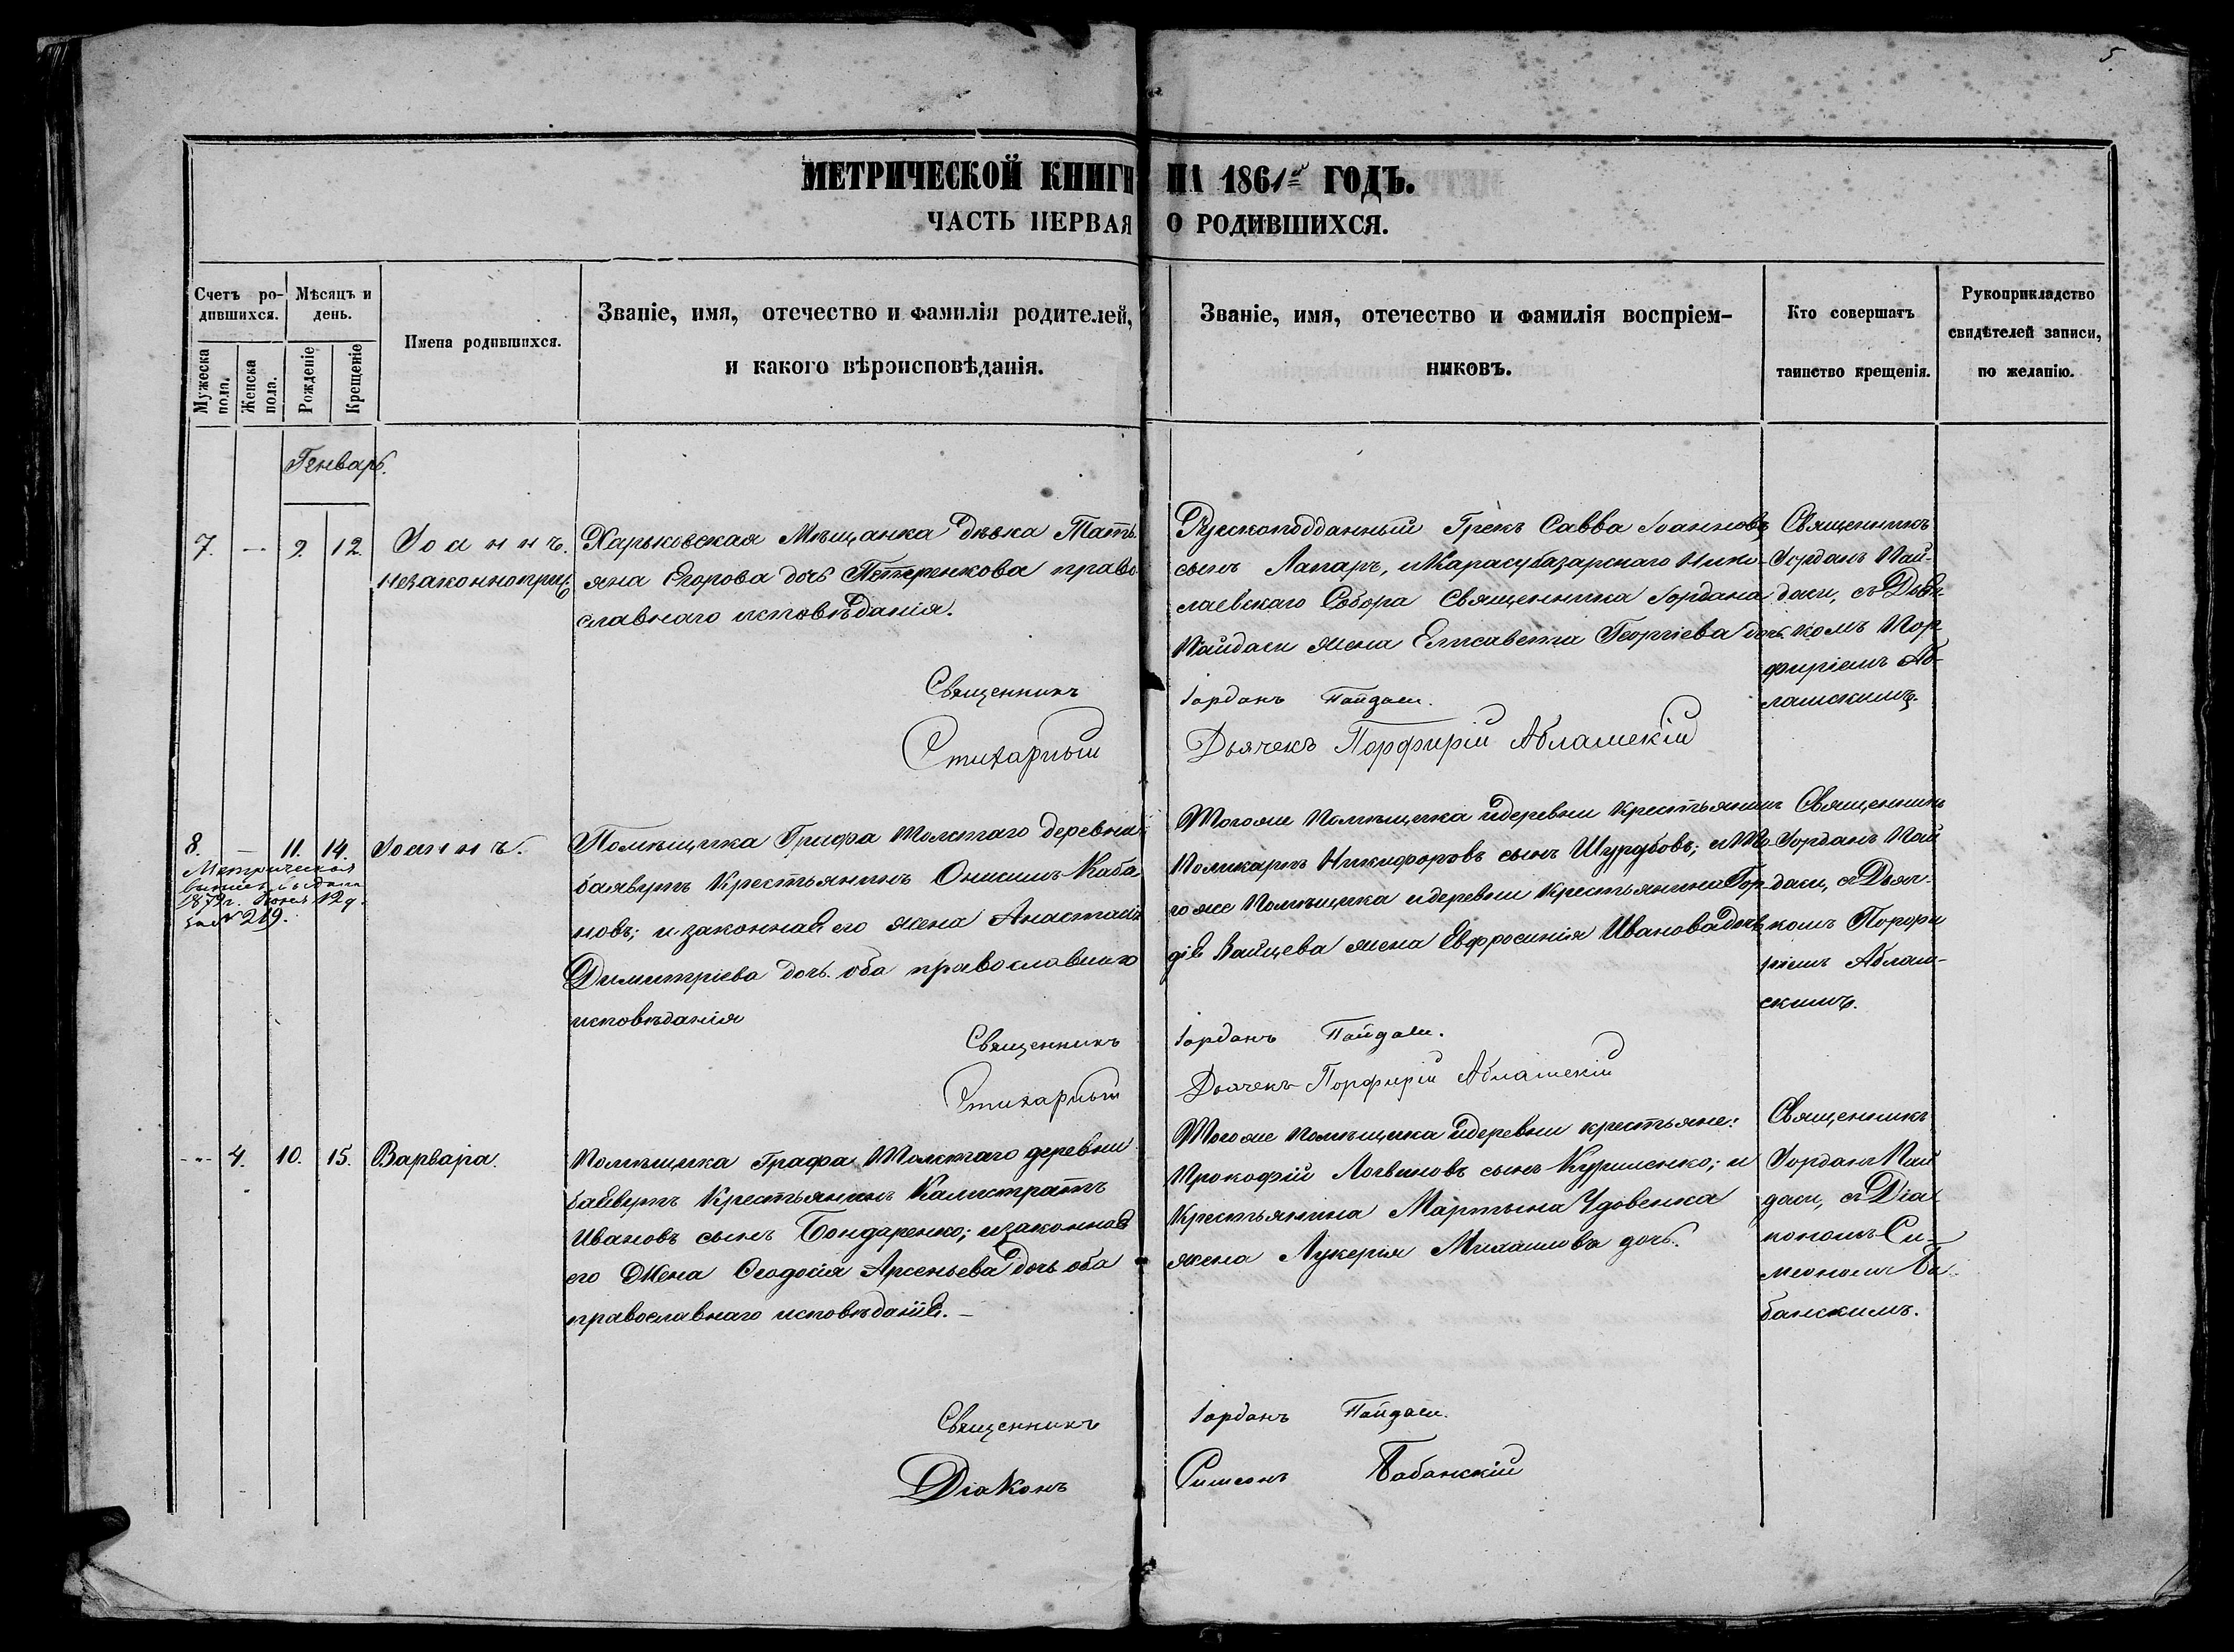 5
МЕТРИЧЕСКОЙ КНИГИ НА 1861й ГОДЪ.
ЧАСТЬ ПЕРВАЯ О РОДИВШИХСЯ.
Счетъ ро-
дившихся.
Мужеска пола.
Женска пола.
Мѣсяцъ и
день.
Рожденіе
Крещеніе
Имена родившихся.
Званіе, имя, отечество и фамилія родителей,
и какого вѣроисповѣданія.
Званіе, имя, отечество и фамилія воспріем-
никовъ.
Кто совершатъ
таинство крещенія.
Рукоприкладство
свидѣтелей записи,
по желанію.
Генварь.
7. — 9. 12.
Іоаннъ.
Незаконнопри
Харьковская Мѣщанка дѣвка Тать
яна Егорова дочь Петренкова право
славнаго исповѣданія.
Грекъ Савва Іоанновъ
сынъ Лапаръ, и Карасубазарскаго Нико-
лаевскаго Собора Священника Іордана
Пайдаси жена Елисавета Георгіева дочь
Священникъ
Іорданъ Пай-
даси, съ Дьяч
комъ Пор
фиріемъ Аб-
лашскимъ.
Священникъ Іорданъ Пайдаси.
Стихарный Дьячекъ Порфирій Аблашскій
8. — 11. 14.
Метрическая
выпись выдана
1879 г. Іюня 12 д.
за № 219.
Іоаннъ.
Помѣщика Графа Толстаго деревни
Крестьянинъ Онисимъ Каба
новъ; и законная его жена Анастасія
Димитріева дочь. оба православнаго
исповѣданія
Тогоже Помѣщика и деревни Крестьянинъ
Поликарпъ Никифоровъ сынъ; и То-
гоже Помѣщика и деревни Крестьянина Гор-
дія Зайцева жена Евфросинія Иванова дочь
Священникъ
Іорданъ Пай
даси, съ Дьяч-
комъ Порфи
ріемъ Аблаш-
скимъ.
Священникъ Іорданъ Пайдаси.
Стихарный Дьячекъ Порфирій Аблашскій
— 4. 10. 15.
Варвара.
Помѣщика Графа Толстаго деревни
Крестьянинъ Калистратъ
Ивановъ сынъ Бондаренко; и законная
его Жена Ѳеодосія Арсеньева дочь оба
православнаго исповѣданія. —
Тогоже Помѣщика и деревни крестьяне:
Прокофій Логвиновъ сынъ Куриленко; и
Крестьянина Мартына Удовенка
жена Лукерія Михаилова дочь.
Священникъ
Іорданъ Пай
даси, съ Діа
кономъ Си-
меономъ Ба
банскимъ.
Священникъ Іорданъ Пайдаси.
Діаконъ Симеонъ Бабанскій